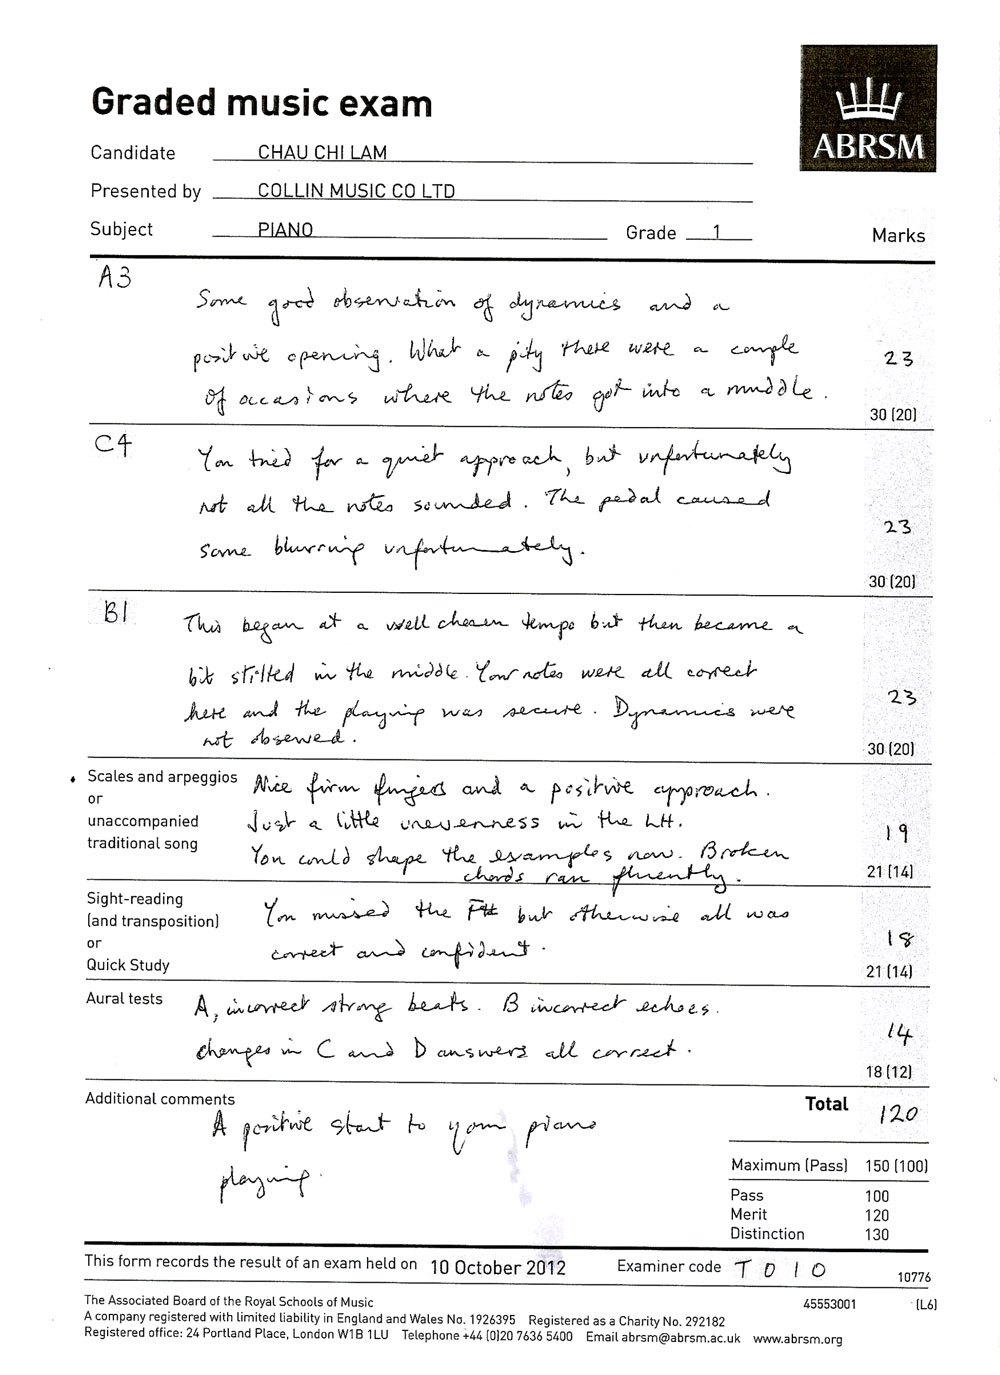 Graded music exam
ABRSM
Candidate CHAU CHI LAM
Presented by COLLIN MUSIC CO LTD
Subject PIANO Grade 1 Marks
A3
Some good observation of dynamics and a
positive opening. What a pity there were a couple
of occasions where the notes got into a muddle.
23
30 (20)
C4
You tried for a quiet approach, but unfortunately
not all the notes sounded. The pedal caused
some blurring unfortunately.
23
30 (20)
B1
This began at a well chosen tempo but then became a
bit stilted in the middle. Your notes were all correct
here and the playing was secure. Dynamics were
not observed.
23
30 (20)
Scales and arpeggios
or
unaccompanied
traditional song
Nice firm fingers and a positive approach.
Just a little unevenness in the LH.
You could shape the examples now. Broken
chords ran fluently.
19
21 (14)
Sight-reading
(and transposition)
or
Quick Study
You missed the F# but otherwise all was
correct and confident.
18
21 (14)
Aural tests
A, incorrect strong beats. B incorrect echoes.
changes in C and D answers all correct.
14
18 (12)
Additional comments
A positive start to your piano
playing.
Total 120
Maximum (Pass) 150 (100)
Pass 100
Merit 120
Distinction 130
This form records the result of an exam held on 10 October 2012 Examiner code T010 10776
The Associated Board of the Royal Schools of Music 45553001 (L6)
A company registered with limited liability in England and Wales No. 1926395 Registered as a Charity No. 292182
Registered office: 24 Portland Place, London W1B 1LU Telephone +44 (0)20 7636 5400 Email abrsm@abrsm.ac.uk www.abrsm.org